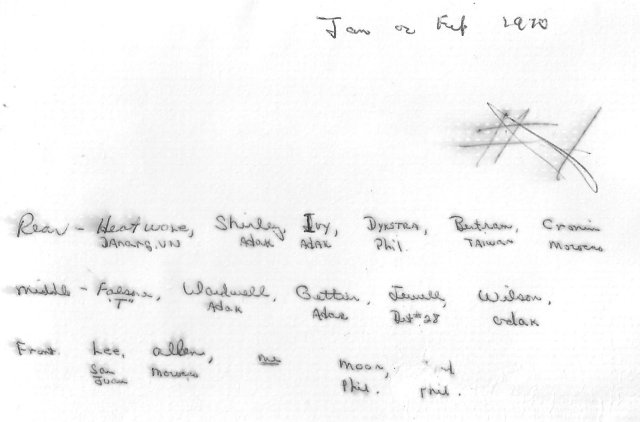 Jan or Feb 1970
Rear - Heatwole, Shirley, Ivy, DYKSTRA, Bertram, Cronin
DANANG, VN ADAK ADAK Phil. TAIWAN Morocco
Middle - "T" Wardwell, Adak Adak Det #28 Wilson, Adak
Front. Lee, Allen, me Moon,
San Juan Morocco Phil. Phil.